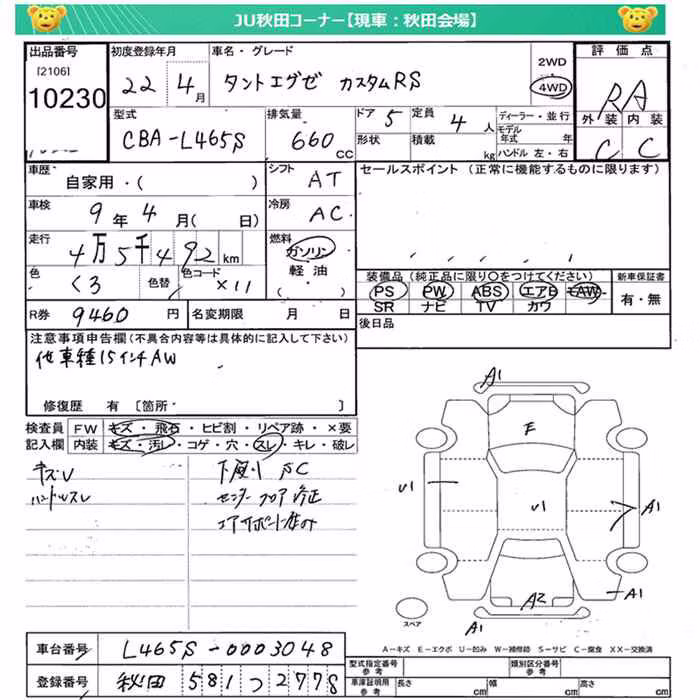 JU秋田コーナー【現車：秋田会場】
出品番号 初度登録年月 車名・グレード 2WD 評価点
[2106]
10230 22 4月 タントエグゼ カスタムRS 4WD RA
型式 排気量 ドア 5 定員 4 人 ディーラー・並行 外装 内装
CBA-L465S 660 cc 形状 積載 kg モデル年式 年 C C
ハンドル 左・右
車歴 シフト セールスポイント (正常に機能するものに限ります)
自家用・( ) AT
車検 9年 4月( 日) 冷房 AC
走行 4万5千492 km 燃料 ガソリン
色 くろ 色替 色コード X11 軽油 ( ) 装備品 (純正品に限り○をつけてください) 新車保証書
PS PW ABS エアB AW 有・無
SR ナビ TV カワ
R券 9460 円 名変期限 月 日 後日品
注意事項申告欄(不具合内容等は具体的に記入して下さい)
他車種15インチAW
修復歴 有 [箇所 ]
検査員 FW キズ・飛石・ヒビ割・リペア跡・×要
記入欄 内装 キズ・汚レ・コゲ・穴・スレ・キレ・破レ
キズU 下廻り SC
ハンドルスレ センターフロア修正
A1
E
U1 U1 A1
A2 A1
A1
スペア
A－キズ E－エクボ U－凹み W－補修跡 S－サビ C－腐食 XX－交換済
車台番号 L465S-0003048
登録番号 秋田 581 つ 2778
型式指定番号 参考 類別区分番号 参考
車庫証明用 参考 長さ cm 幅 cm 高さ cm